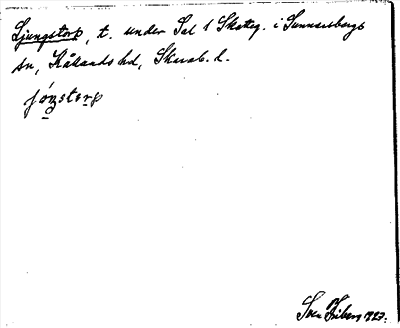 Ljungstorp, t. under Sal 1 Skatteg. i Sunnersbergs
sn, Kållands hd, Skarab. l.
jóŋstorp
Sven Friberg 1923.